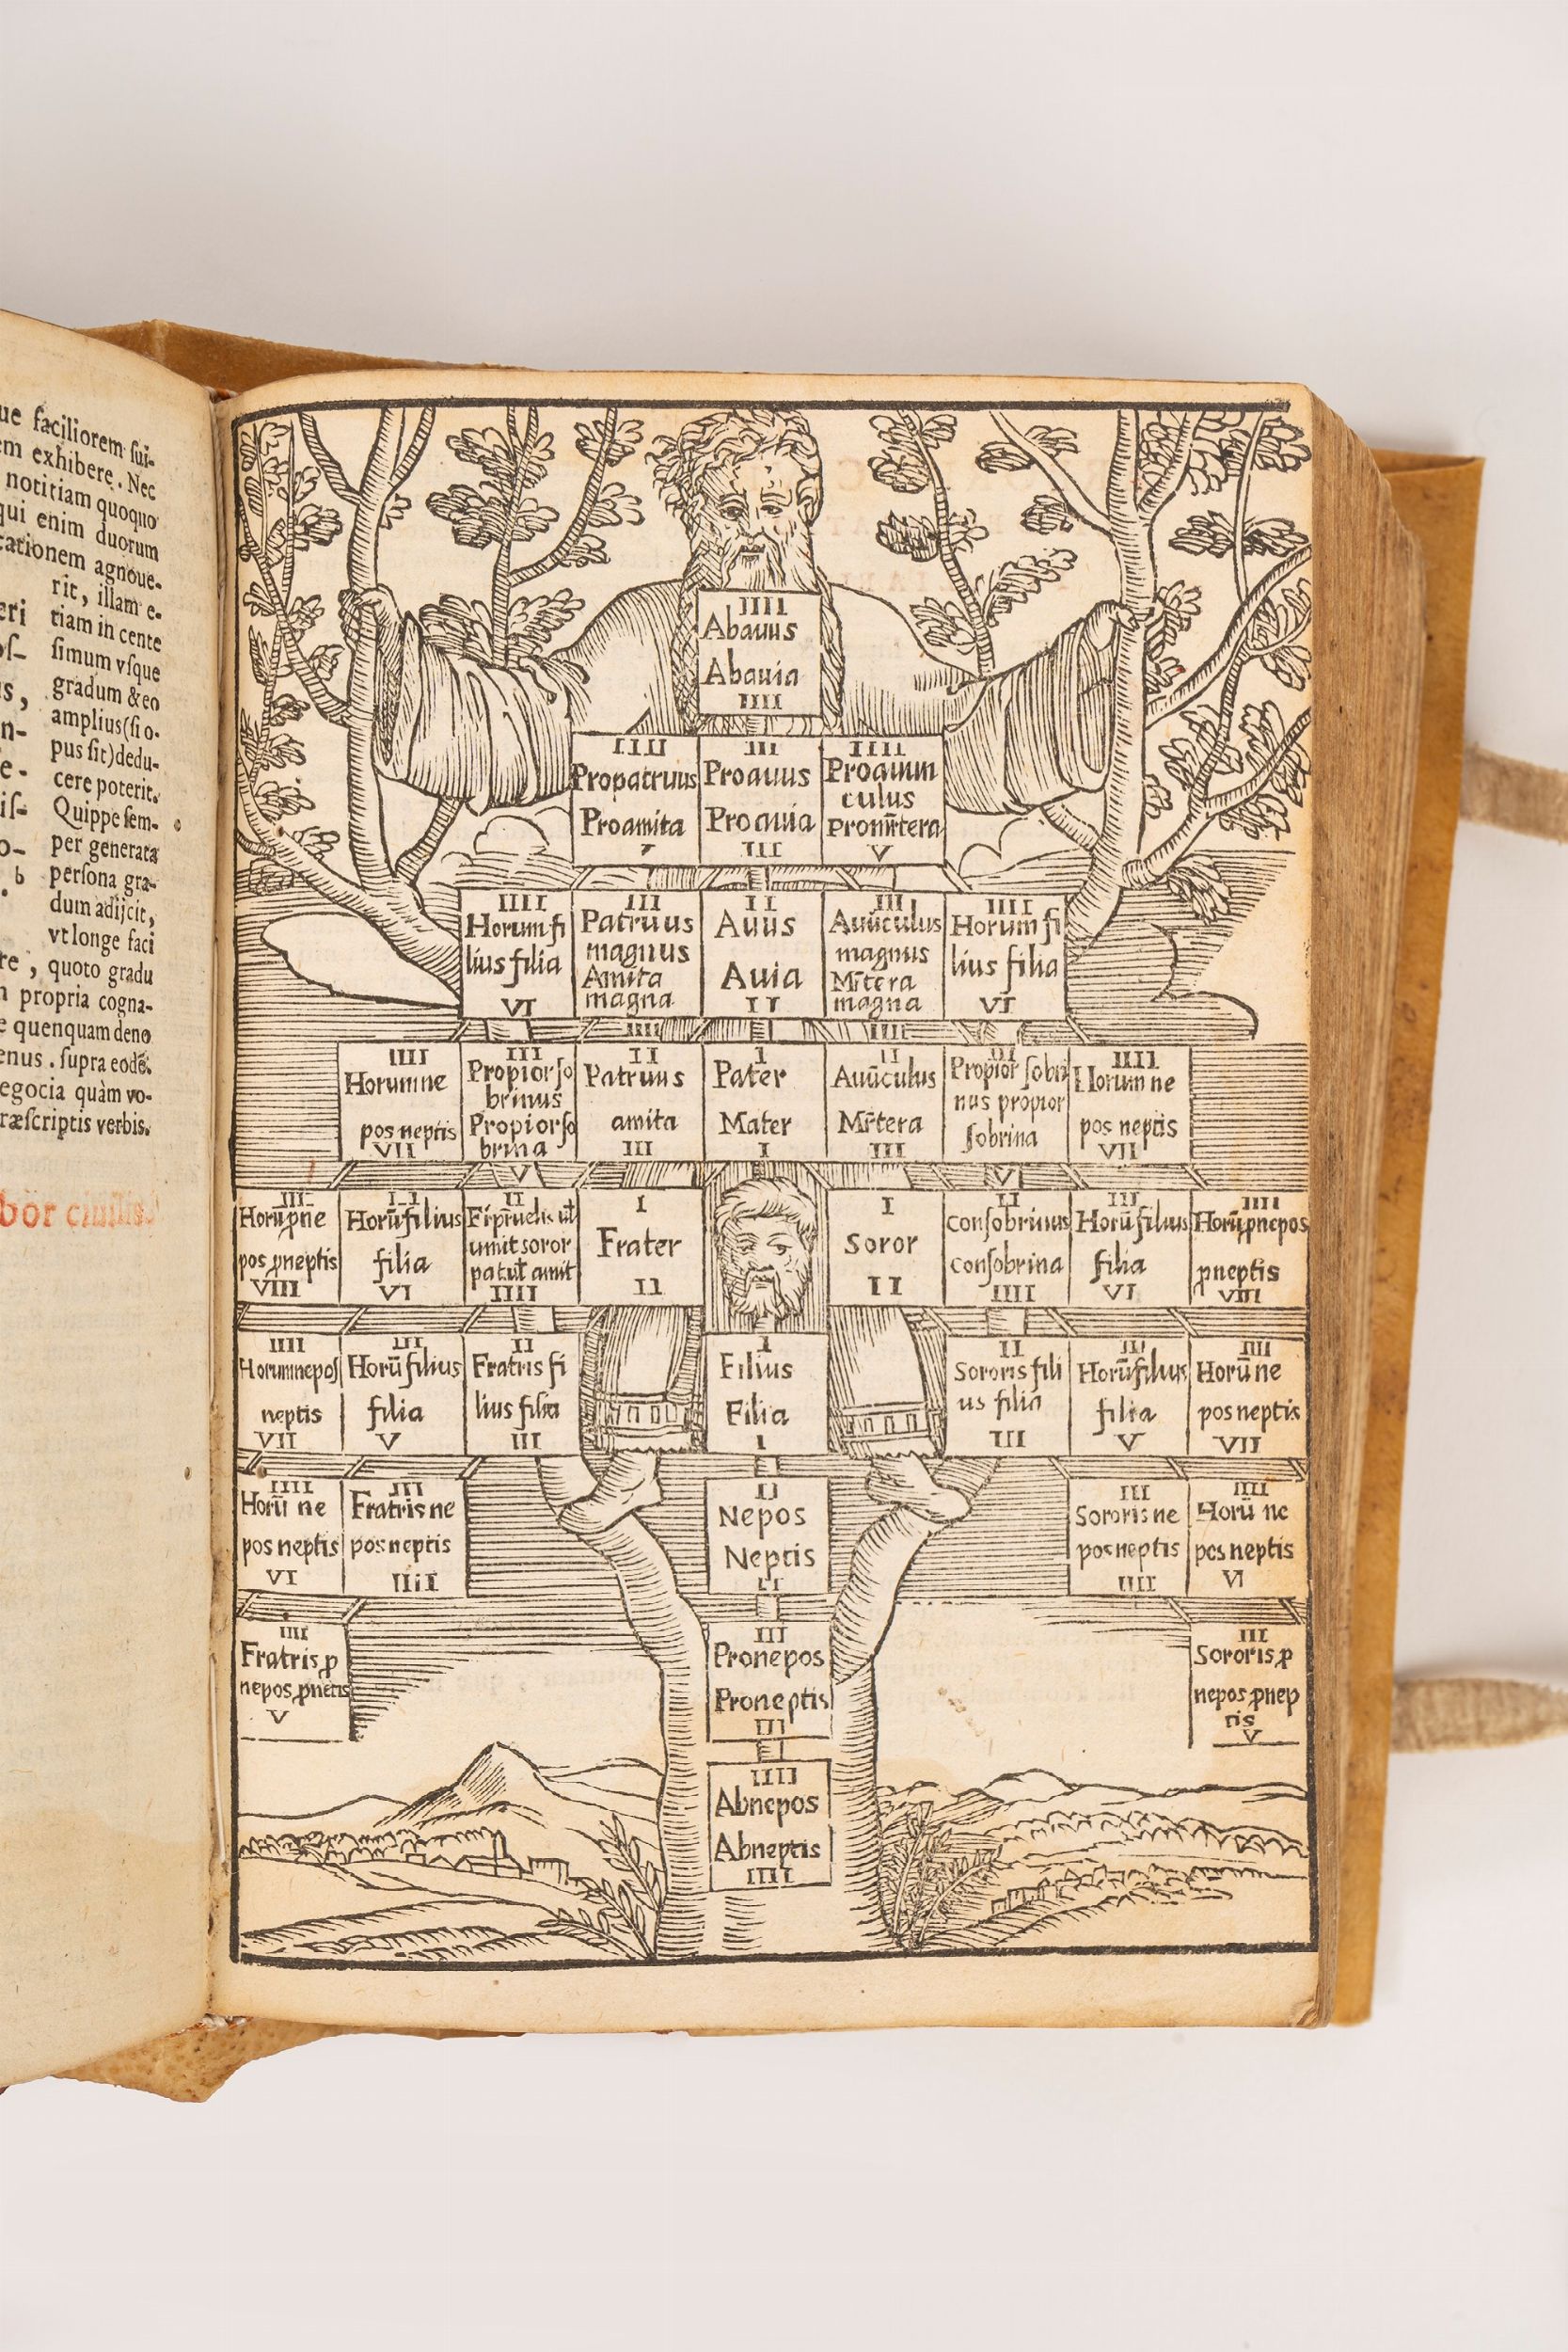 ue faciliorem sui-
em exhibere. Nec
notitiam quoquo
qui enim duorum
cationem agnoue-
rit, illam e-
tiam in cente
simum vsque
gradum &eo
amplius(si o-
pus sit)dedu-
cere poterit.
Quippe sem-
per generata
b persona gra-
dum adijcit,
vt longe faci
re, quoto gradu
propria cogna-
e quenquam deno
enus. supra eodē.
egocia quàm vo-
ræscriptis verbis.
bor ciuilis.
IIII
Abauus
Abauia
IIII
IIII III IIII
Propatruus Proauus Proauun
culus
Proamita Proauia Promr̄tera
III V
IIII III II III IIII
Horum fi Patruus Auus Auūculus Horum fi
lius filia magnus magnus lius filia
Amita Auia Mr̄tera
VI magna II magna VI
IIII IIII
IIII III II I II III IIII
Horum ne Propior so Patruus Pater Auūculus Propior sobri Horum ne
brinus nus propior
pos neptis Propior so amita Mater Mr̄tera sobrina pos neptis
VII brina III I III VII
V V
III II I I II III IIII
Horū ꝓne Horū filius Frater Soror Consobrinus Horū filius Horū ꝓnepos
pos ꝓneptis filia consobrina filia ꝓneptis
VIII VI IIII II II IIII VI VIII
IIII III II I II III IIII
Horum nepos Horū filius Fratris fi Filius Sororis fili Horū filius Horū ne
neptis filia lius filia Filia us filia filia pos neptis
VII V III I III V VII
IIII III II III IIII
Horū ne Fratris ne Nepos Sororis ne Horū ne
pos neptis pos neptis Neptis pos neptis pos neptis
VI IIII II IIII VI
IIII III III
Fratris ꝓ Pronepos Sororis ꝓ
nepos ꝓneptis Proneptis nepos ꝓnep
tis
V III V
IIII
Abnepos
Abneptis
IIII